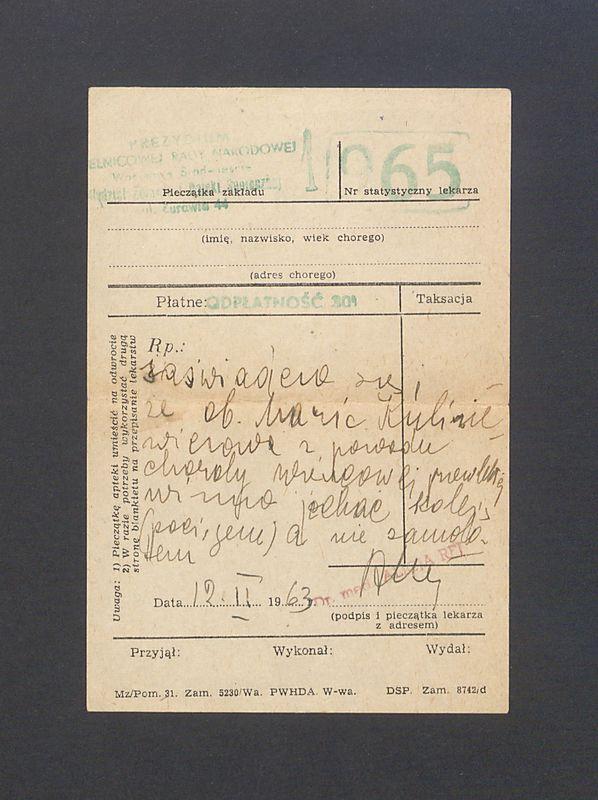 PREZYDIUM
DZIELNICOWEJ RADY NARODOWEJ
Opieki Społecznej
ul. Żurawia 44
1965
Pieczątka zakładu
Nr statystyczny lekarza
(imię, nazwisko, wiek chorego)
(adres chorego)
Płatne: ODPŁATNOŚĆ 30%
Taksacja
Uwaga: 1) Pieczątkę apteki umieścić na odwrocie
2) W razie potrzeby wykorzystać drugą
stronę blankietu na przepisanie lekarstw
Rp.:
Zaświadcza się,
że ob.
z powodu
choroby przewlekłej
winna jechać koleją
(pociągiem) a nie samolo-
tem
Dr. med.
Data 12. II 1963
(podpis i pieczątka lekarza
z adresem)
Przyjął: Wykonał: Wydał:
Mz/Pom. 31. Zam. 5230/Wa. PWHDA. W-wa. DSP. Zam. 8742/d